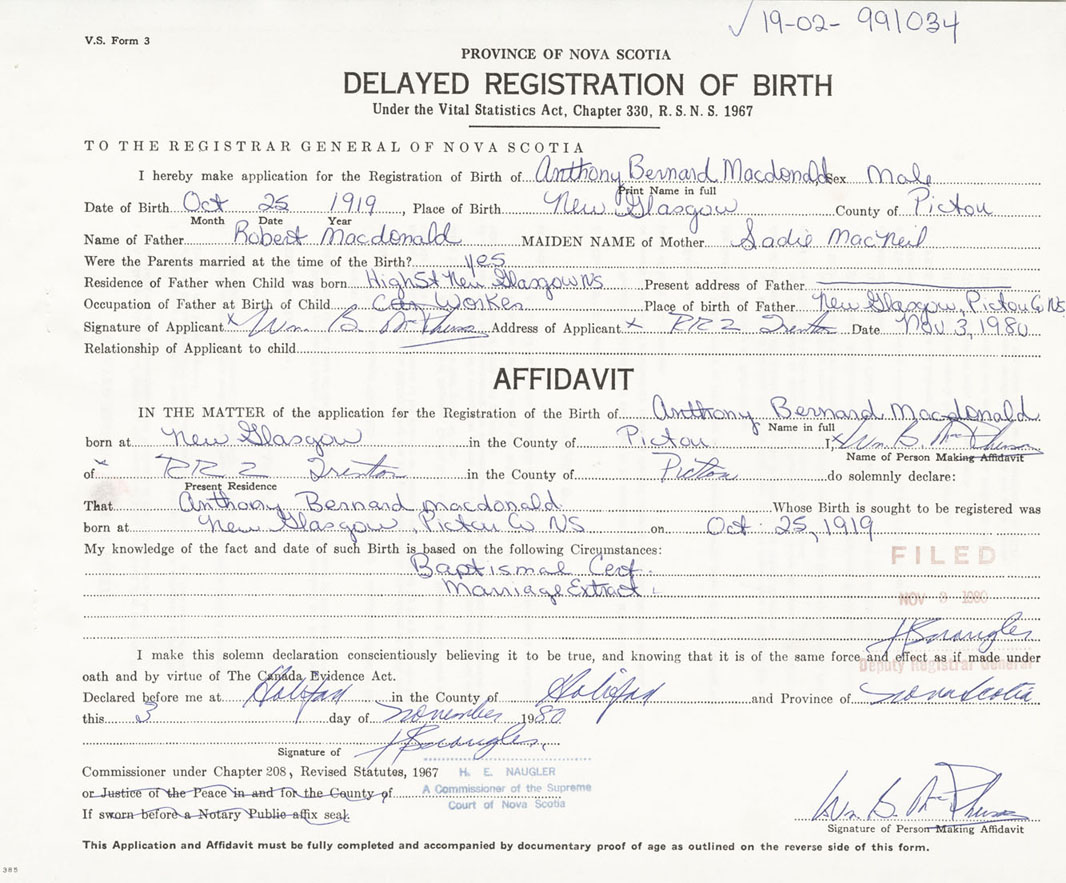 ✓ 19-02- 991034
V.S. Form 3
PROVINCE OF NOVA SCOTIA
DELAYED REGISTRATION OF BIRTH
Under the Vital Statistics Act, Chapter 330, R. S. N. S. 1967
TO THE REGISTRAR GENERAL OF NOVA SCOTIA
I hereby make application for the Registration of Birth of Anthony Bernard Macdonald Sex Male
Print Name in full
Date of Birth Oct 25 1919, Place of Birth New Glasgow County of Pictou
Month Date Year
Name of Father Robert Macdonald MAIDEN NAME of Mother Sadie MacNeil
Were the Parents married at the time of the Birth? yes
Residence of Father when Child was born High St New Glasgow NS Present address of Father
Occupation of Father at Birth of Child Car Worker Place of birth of Father New Glasgow, Pictou Co NS
Signature of Applicant x Wm B. McPherson Address of Applicant x RR 2 Trenton Date Nov 3, 1980
Relationship of Applicant to child
AFFIDAVIT
IN THE MATTER of the application for the Registration of the Birth of Anthony Bernard Macdonald
Name in full
born at New Glasgow in the County of Pictou I, x Wm B. McPherson
Name of Person Making Affidavit
of x RR 2 Trenton in the County of Pictou do solemnly declare:
Present Residence
That Anthony Bernard macdonald Whose Birth is sought to be registered was
born at New Glasgow, Pictou Co NS on Oct. 25, 1919
My knowledge of the fact and date of such Birth is based on the following Circumstances:
Baptismal Cert.
Marriage Extract.
FILED
NOV 3 1980
Deputy Registrar General
I make this solemn declaration conscientiously believing it to be true, and knowing that it is of the same force and effect as if made under
oath and by virtue of The Canada Evidence Act.
Declared before me at Halifax in the County of Halifax and Province of Nova Scotia
this 3 day of November 1980
Signature of
Commissioner under Chapter 208, Revised Statutes, 1967
or Justice of the Peace in and for the County of
If sworn before a Notary Public affix seal.
H. E. NAUGLER
A Commissioner of the Supreme
Court of Nova Scotia
Wm B. McPherson
Signature of Person Making Affidavit
This Application and Affidavit must be fully completed and accompanied by documentary proof of age as outlined on the reverse side of this form.
385